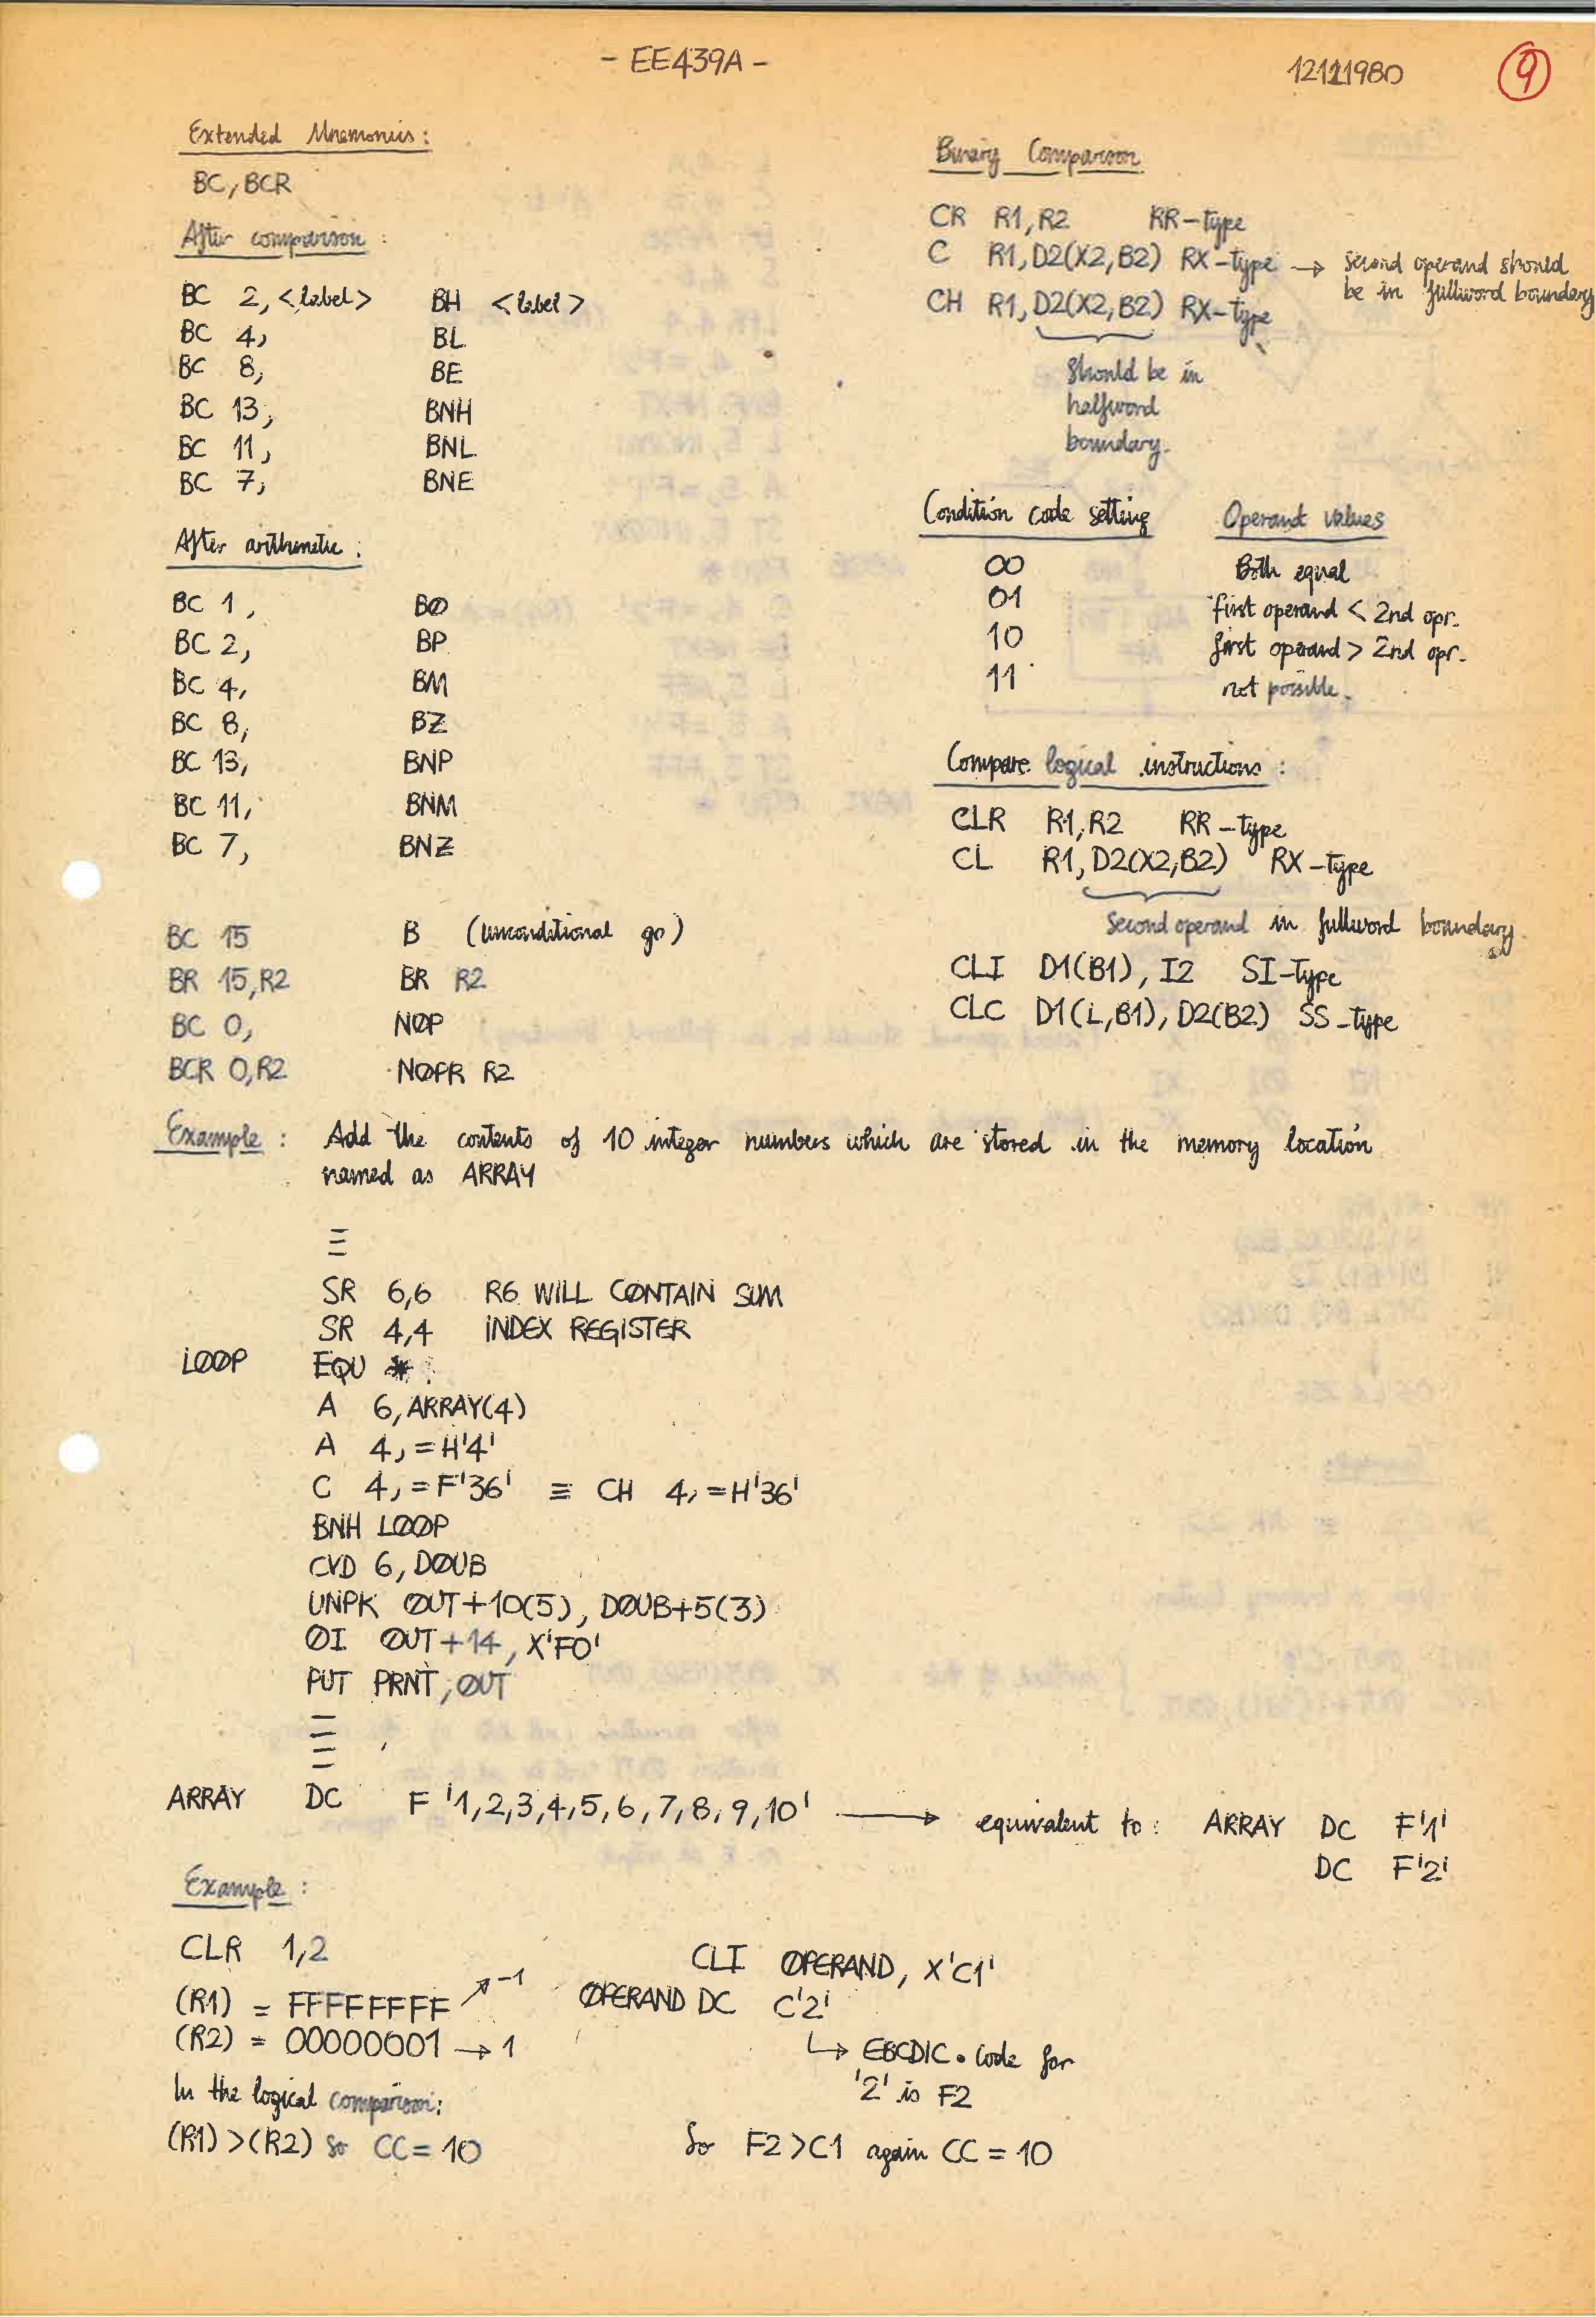 - EE439A -
12111980
9
Extended Mnemonics:
BC, BCR
After comparison :
BC 2, <label> BH <label>
BC 4, BL
BC 8, BE
BC 13, BNH
BC 11, BNL
BC 7, BNE
After arithmetic :
BC 1, BØ
BC 2, BP
BC 4, BM
BC 8, BZ
BC 13, BNP
BC 11, BNM
BC 7, BNZ
BC 15 B (unconditional go)
BR 15,R2 BR R2
BC 0, NØP
BCR 0,R2 NØPR R2
Binary Comparison
CR R1,R2 RR-type
C R1,D2(X2,B2) RX-type → second operand should
be in fullword boundary
CH R1,D2(X2,B2) RX-type
Should be in
halfword
boundary.
Condition code setting Operand values
00 Both equal
01 first operand < 2nd opr.
10 first operand > 2nd opr.
11 not possible.
Compare logical instructions :
CLR R1,R2 RR-type
CL R1,D2(X2,B2) RX-type
Second operand in fullword boundary
CLI D1(B1), I2 SI-Type
CLC D1(L,B1), D2(B2) SS-type
Example : Add the contents of 10 integer numbers which are stored in the memory location
named as ARRAY
SR 6,6 R6 WILL CØNTAIN SUM
SR 4,4 INDEX REGISTER
LØØP EQU *
A 6,ARRAY(4)
A 4,=H'4'
C 4,=F'36' ≡ CH 4,=H'36'
BNH LØØP
CVD 6,DØUB
UNPK ØUT+10(5), DØUB+5(3)
ØI ØUT+14, X'F0'
PUT PRNT,ØUT
ARRAY DC F '1,2,3,4,5,6,7,8,9,10' → equivalent to : ARRAY DC F'1'
DC F'2'
Example :
CLR 1,2
(R1) = FFFFFFFF ↗ -1
(R2) = 00000001 → 1
In the logical comparison:
(R1) >(R2) so CC = 10
CLI ØPERAND, X'C1'
ØPERAND DC C'2'
↳ EBCDIC. Code for
'2' is F2
So F2 >C1 again CC = 10